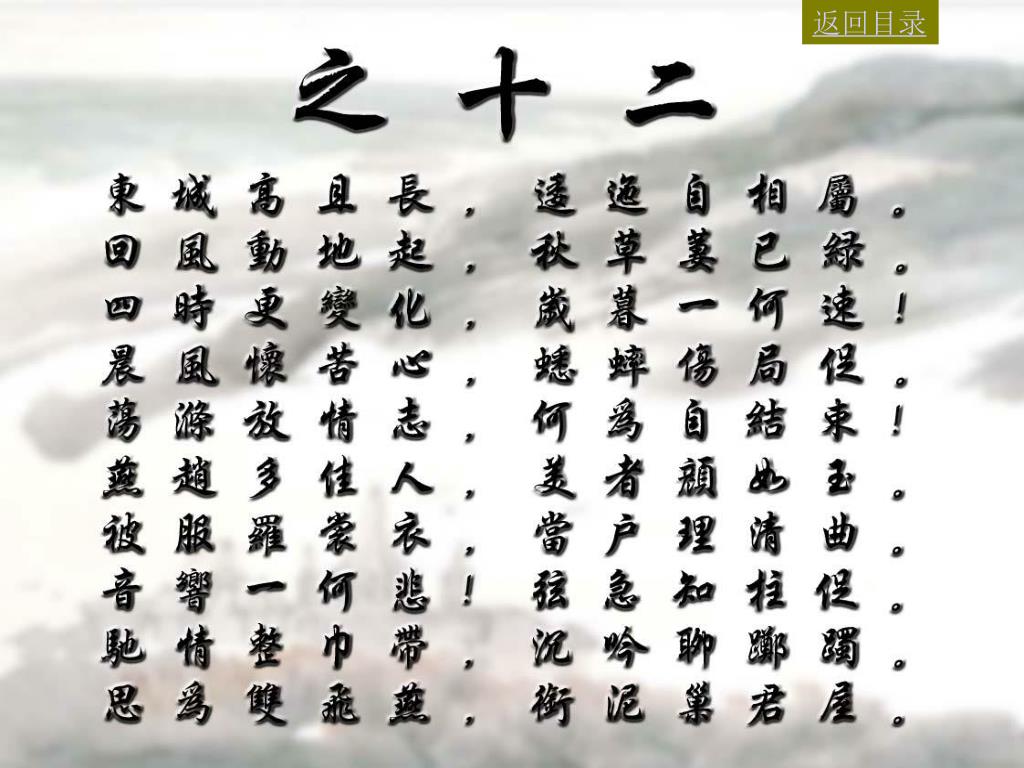 返回目录
之十二
東城高且長，逶迤自相屬。
回風動地起，秋草萋已緑。
四時更變化，歲暮一何速！
晨風懷苦心，蟋蟀傷局促。
蕩滌放情志，何爲自結束！
燕趙多佳人，美者顔如玉。
被服羅裳衣，當户理清曲。
音響一何悲！弦急知柱促。
馳情整巾帶，沉吟聊躑躅。
思爲雙飛燕，銜泥巢君屋。